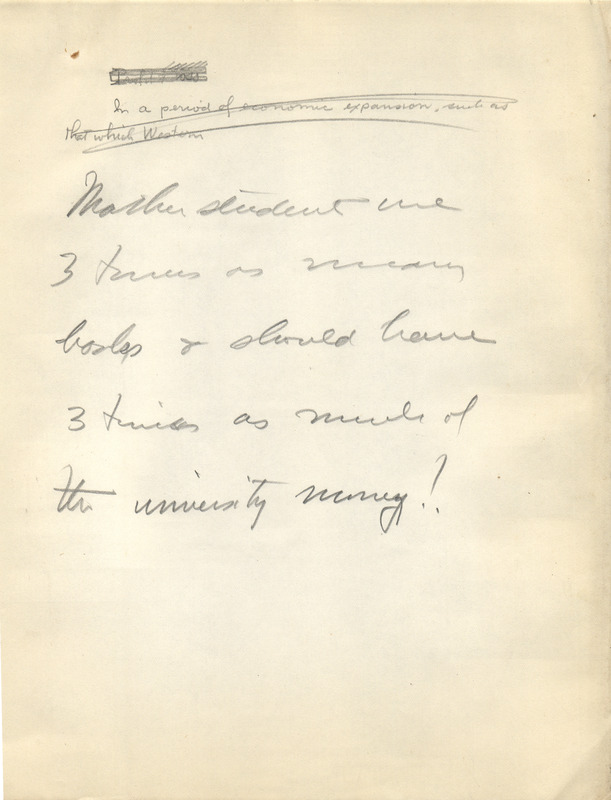 In a period of economic expansion, such as
that which Western
Mather student use
3 times as many
books & should have
3 times as much of
the university money!